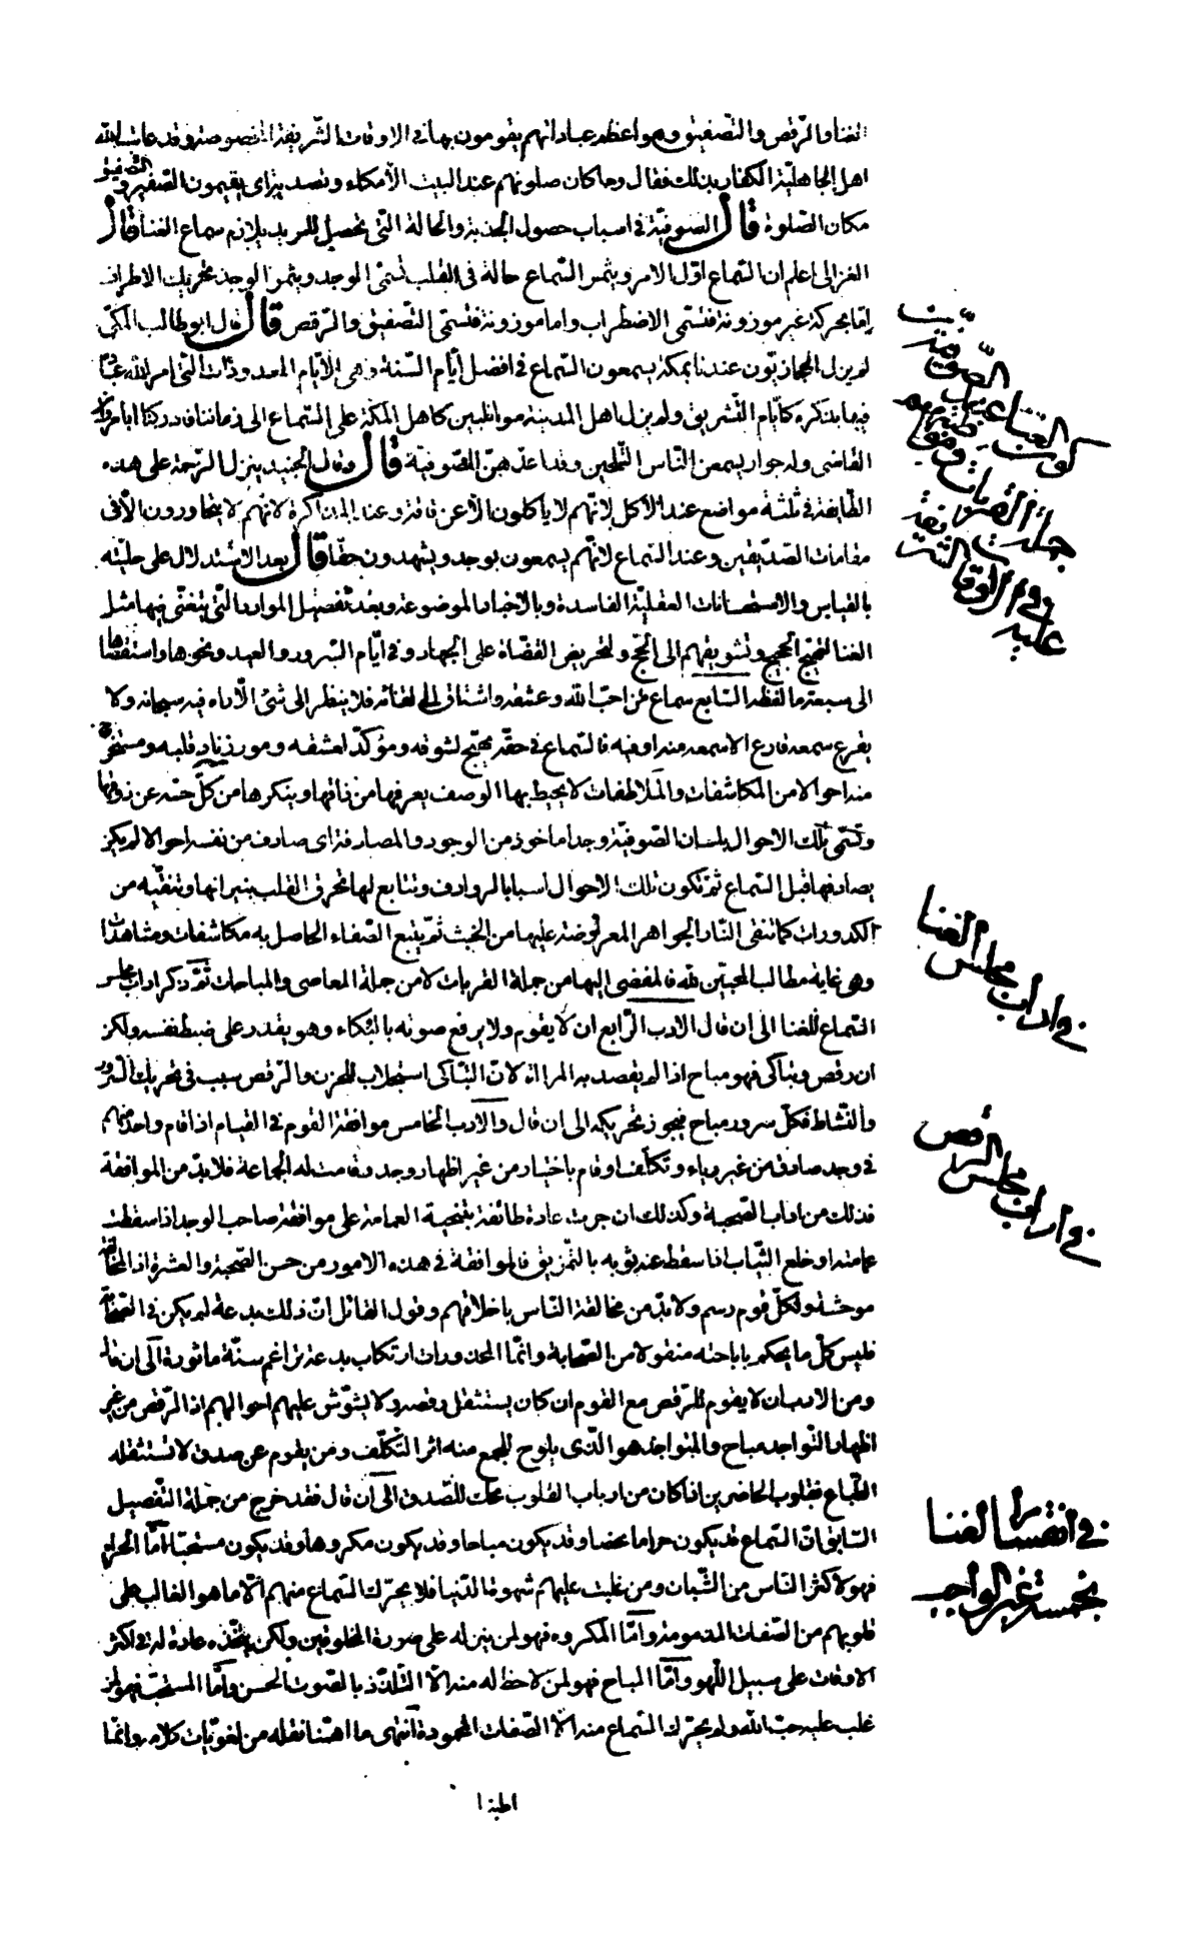 الغنا والرّقص والتّصفيق وهو اعظم عباداتهم يقومون بها فى الاوقات الشّريفة المخصوصة وقد عاتب الله
اهل الجاهليّة الكفار بذلك فقال وما كان صلوتهم عند البيت الّا مكاء وتصدية اى يقيمون الصّفير والتّصفيق
مكان الصّلوة قال الصّوفيّة فى اسباب حصول الجذبة والحالة الّتى تحصل للمريد يلازم سماع الغنا قال
الغزالى اعلم ان السّماع اوّل الامر ويثمر السّماع حالة فى القلب تسمّى الوجد ويثمر الوجد تحريك الاطراف
امّا بحركة غير موزونة فتسمّى الاضطراب واما موزونة فتسمّى التّصفيق والرّقص قال قال ابو طالب المكّى
لم يزل الحجازيّون عندنا بمكة يسمعون السّماع فى افضل ايّام السّنة وهى الايّام المعدودات الّتى امر الله عباده
فيها بذكره كايّام التّشريق ولم يزل اهل المدينة مواظبين كاهل المكّة على السّماع الى زماننا فادركنا ابا مروان
القاضى وله جوار يسمعن النّاس التّلحين وقد اعدّهنّ للصّوفيّة قال وقال الجنيد ينزل الرّحمة على هذه
الطّايفة فى ثلثة مواضع عند الاكل لانّهم لا ياكلون الّا عن فاقة وعند المذاكرة لانّهم لا يتحاورون الّا فى
مقامات الصّدّيقين وعند السّماع لانّهم يسمعون بوجد ويشهدون حقّا قال بعد الاستدلال على حلّيته
بالقياس والاستحسانات العقليّة الفاسدة وبالاخبار الموضوعة وبعد تفصيل الموارد الّتى يتغنّى فيها مثل
الغنا لتهيّج الحجيج وتشويقهم الى الحجّ ولتحريض الغزاة على الجهاد وفى ايّام السّرور والعيد ونحوها واستقصاها
الى سبعة ما لفظه السّابع سماع من احبّ الله وعشقه واشتاق الى لقائه فلا ينظر الى شئ الّا راه فيه سبحانه ولا
يقرع سمعه قارع الا سمعه منه او فيه فالسّماع فى حقّه مهيّج لشوقه ومؤكّد لعشقه ومور زناد قلبه ومستخرج
منه احوالا من المكاشفات والملاطفات لا يحيط بها الوصف يعرفها من ذاقها وينكرها من كلّ حسّه عن ذوقها
وتسمّى تلك الاحوال بلسان الصّوفيّة وجدا ماخوذ من الوجود والمصادفة اى صادف من نفسه احوالا لم يكن
يصادفها قبل السّماع ثمّ تكون تلك الاحوال اسبابا لروادف وتتابع لها تحرق القلب بنيرانها وتنقّيه من
الكدورات كما تنقى النّار الجواهر المعروضة عليها من الخبث ثمّ يتبع الصّفاء الحاصل به مكاشفات ومشاهدات
وهى غاية مطالب المحبّين لله فالمفضى اليها من جملة القربات لا من جملة المعاصى والمباحات ثمّ ذكر اداب مجلس
السّماع للغنا الى ان قال الادب الرّابع ان لا يقوم ولا يرفع صوته بالبكاء وهو يقدر على ضبط نفسه ولكن
ان رقص وتباكى فهو مباح اذا لم يقصد به المراااة لانّ التّباكى استجلاب للحزن والرّقص سبب فى تحريك السّرور
والنّشاط فكلّ سرور مباح فيجوز تحريكه الى ان قال والادب الخامس موافقة القوم فى القيام اذا قام واحد منهم
فى وجد صادق من غير رياء وتكلّف او قام باختيار من غير اظهار وجد وقامت له الجماعة فلا بدّ من الموافقة
فذلك من اداب الصّحبة وكذلك ان جرت عادة طائفة بتنحية العمامة على موافقة صاحب الوجد اذا سقطت
عمامته او خلع الثّياب اذا سقط عنه ثوبه بالتّمزيق فالموافقة فى هذه الامور من حسن الصّحبة والعشرة اذ المخالفة
موحشة ولكلّ قوم رسم ولا بدّ من مخالقة النّاس باخلاقهم وقول القائل انّ ذلك بدعة لم يكن فى الصّحابة
فليس كلّ ما يحكم باباحته منقولا من الصّحابة وانّما المحذورات ارتكاب بدعة تراغم سنّة ماثورة الى ان قال
ومن الادب ان لا يقوم للرّقص مع القوم ان كان يستثقل رقصه ولا يشوّش عليهم احوالهم اذ الرّقص من غير
اظهار التّواجد مباح والمتواجد هو الّذى يلوح للجمع منه اثر التّكلّف ومن يقوم عن صدق لا تستثقله
الطّباع فقلوب الحاضرين اذا كان من ارباب القلوب محك للصّدق الى ان قال فقد خرج من جملة التّفصيل
السّابق انّ السّماع قد يكون حراما محضا وقد يكون مباحا وقد يكون مكروها وقد يكون مستحبّا امّا الحرام
فهو لاكثر النّاس من الشّبان ومن غلبت عليهم شهوة الدّنيا فلا يحرّك السّماع منهم الّا ما هو الغالب على
قلوبهم من الصّفات المذمومة وامّا المكروه فهو لمن ينزله على صورة المخلوقين ولكن يتّخذه عادة له فى اكثر
الاوقات على سبيل اللّهو وامّا المباح فهو لمن لا حظ له منه الّا التّلذّذ بالصّوت الحسن وامّا المستحبّ فهو لمن
غلب عليه حبّ الله ولم يحرّك السّماع منه الّا الصّفات المحمودة انتهى ما اهمّنا نقله من لغويّات كلامه وانّما
كون الغنا عند الصّوفيّة
جملة القربات
فى الاوقات الشريفة
عليه
فى اداب مجلس الغنا
فى اداب مجلس الرقص
فى انقسام الغنا
بخمسة غير الواجب